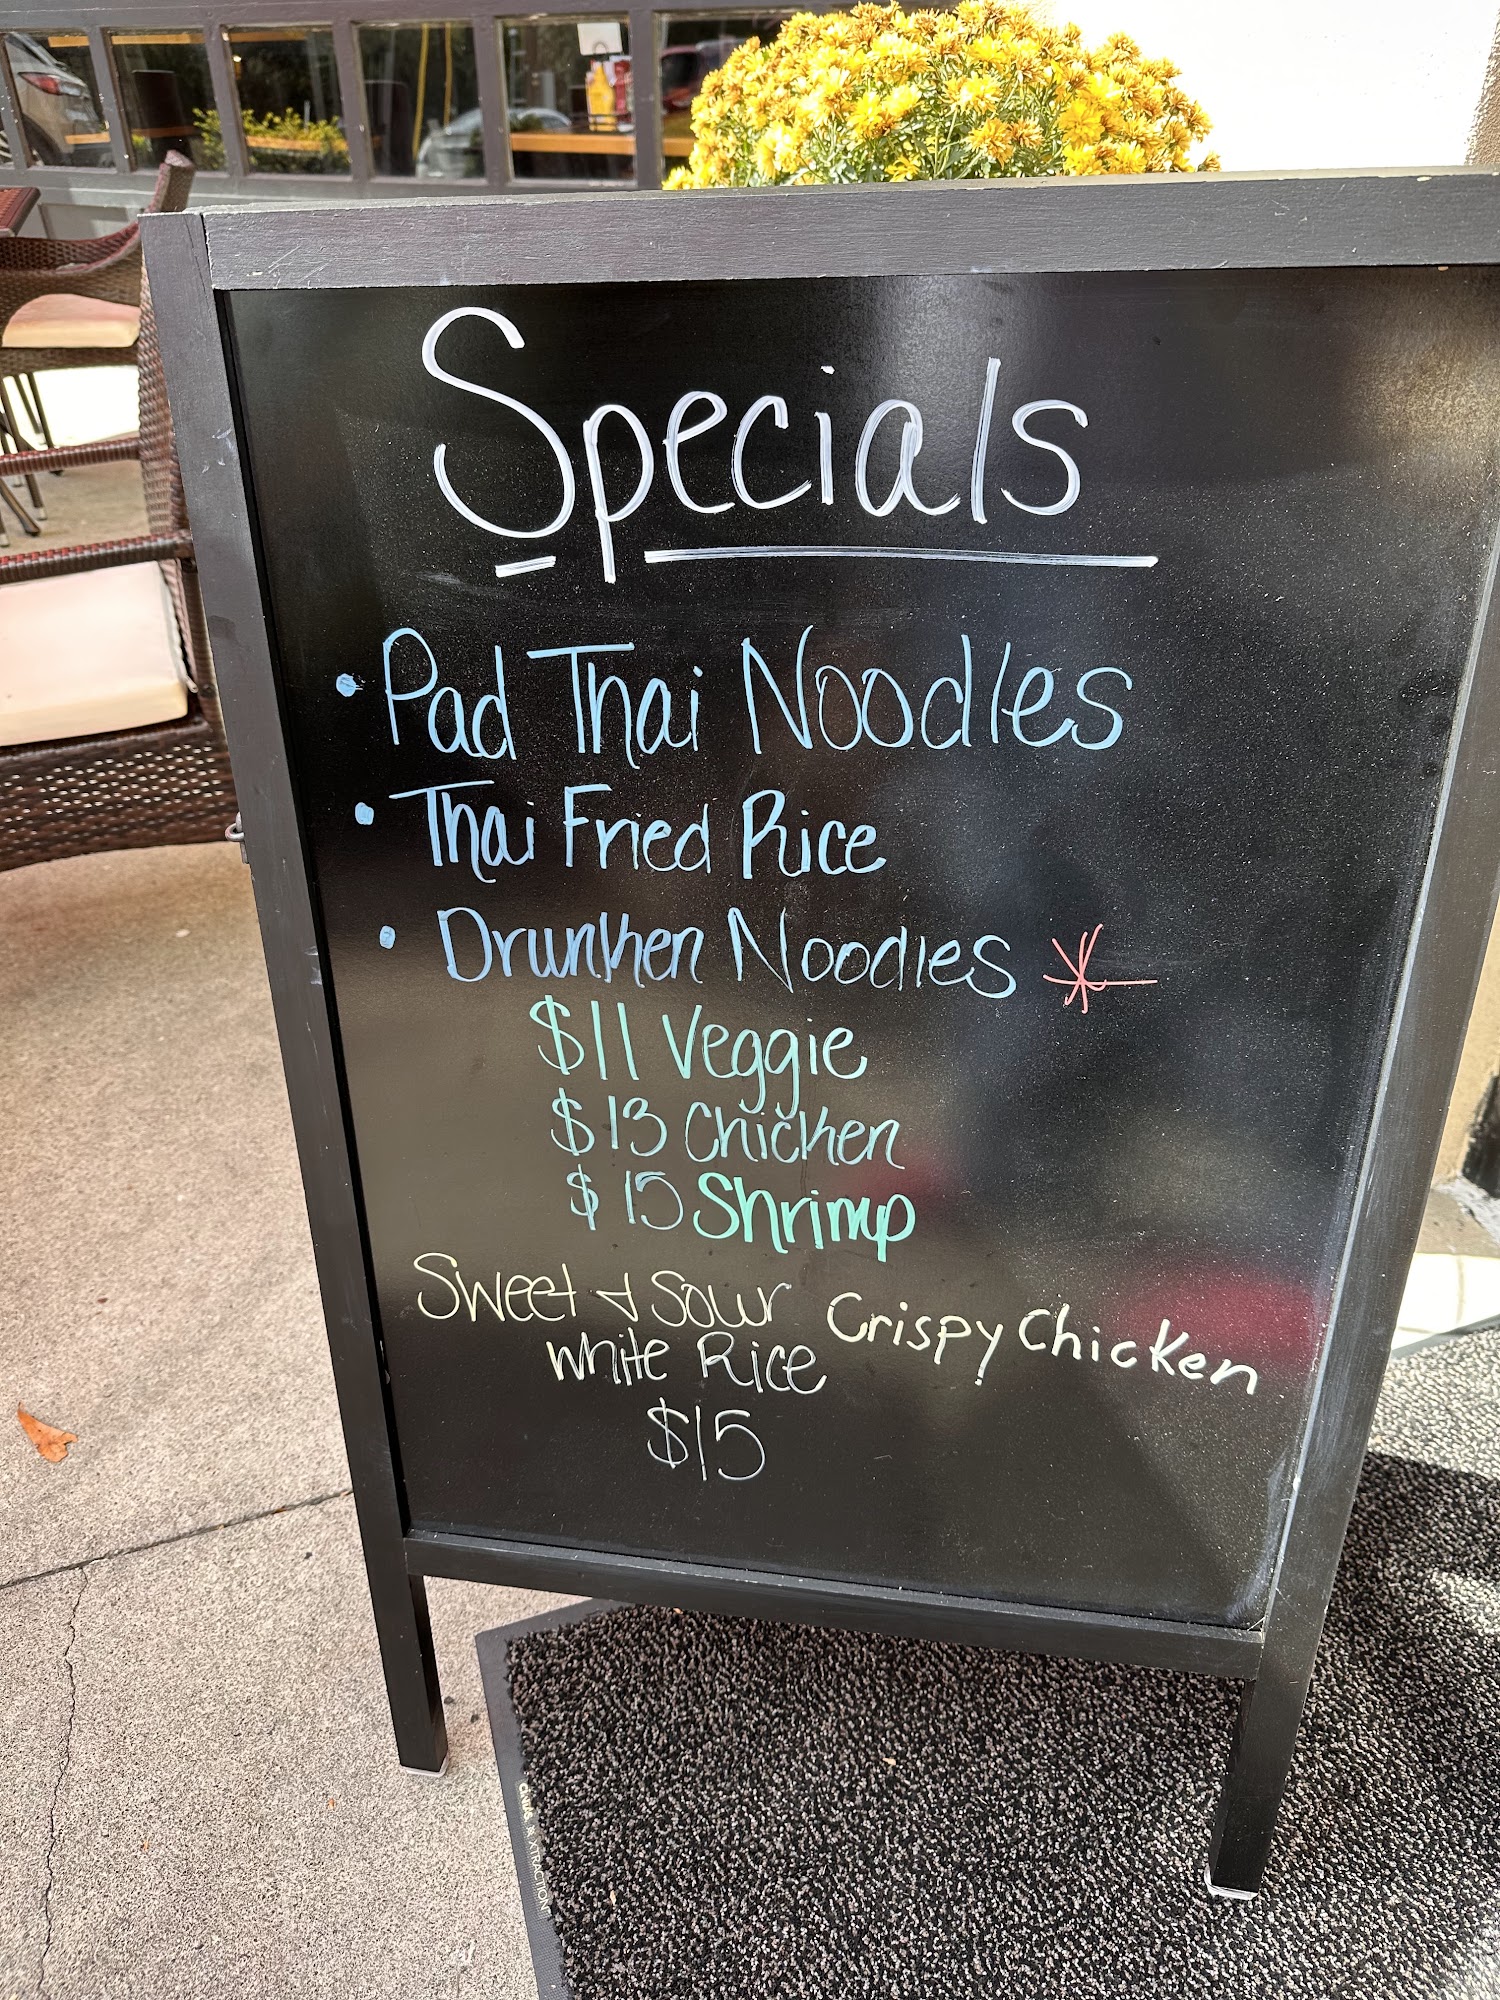 Specials
• Pad Thai Noodles
• Thai Fried Rice
• Drunken Noodles *
$11 Veggie
$13 Chicken
$15 Shrimp
Sweet & Sour Crispy Chicken
White Rice
$15